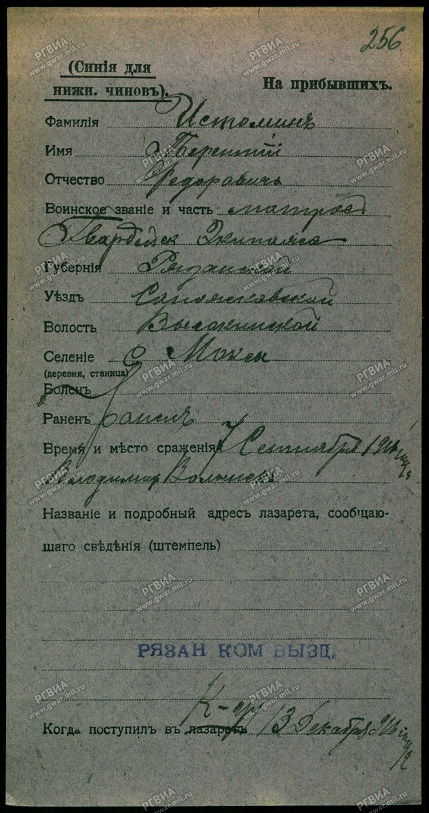 256
(Синія для
нижн. чиновъ).
На прибывшихъ.
Фамилія Истоминъ
Имя Терентій
Отчество Федоровичъ
Воинское званіе и часть матрос
Гвардейск Экипажа
Губернія Рязанской
Уѣздъ Сапожковской
Волость
Селеніе с Можсы
(деревня, станица)
Боленъ
Раненъ раненъ
Время и мѣсто сраженія 7 Сентября 1916 году
Володимир Волынск
Названіе и подробный адресъ лазарета, сообщаю-
щаго свѣдѣнія (штемпель)
РЯЗАН КОМ ВЫЗД.
Когда поступилъ въ лазаретъ К-ву 13 Декабря 916 году
РГВИА
www.gwar.mil.ru